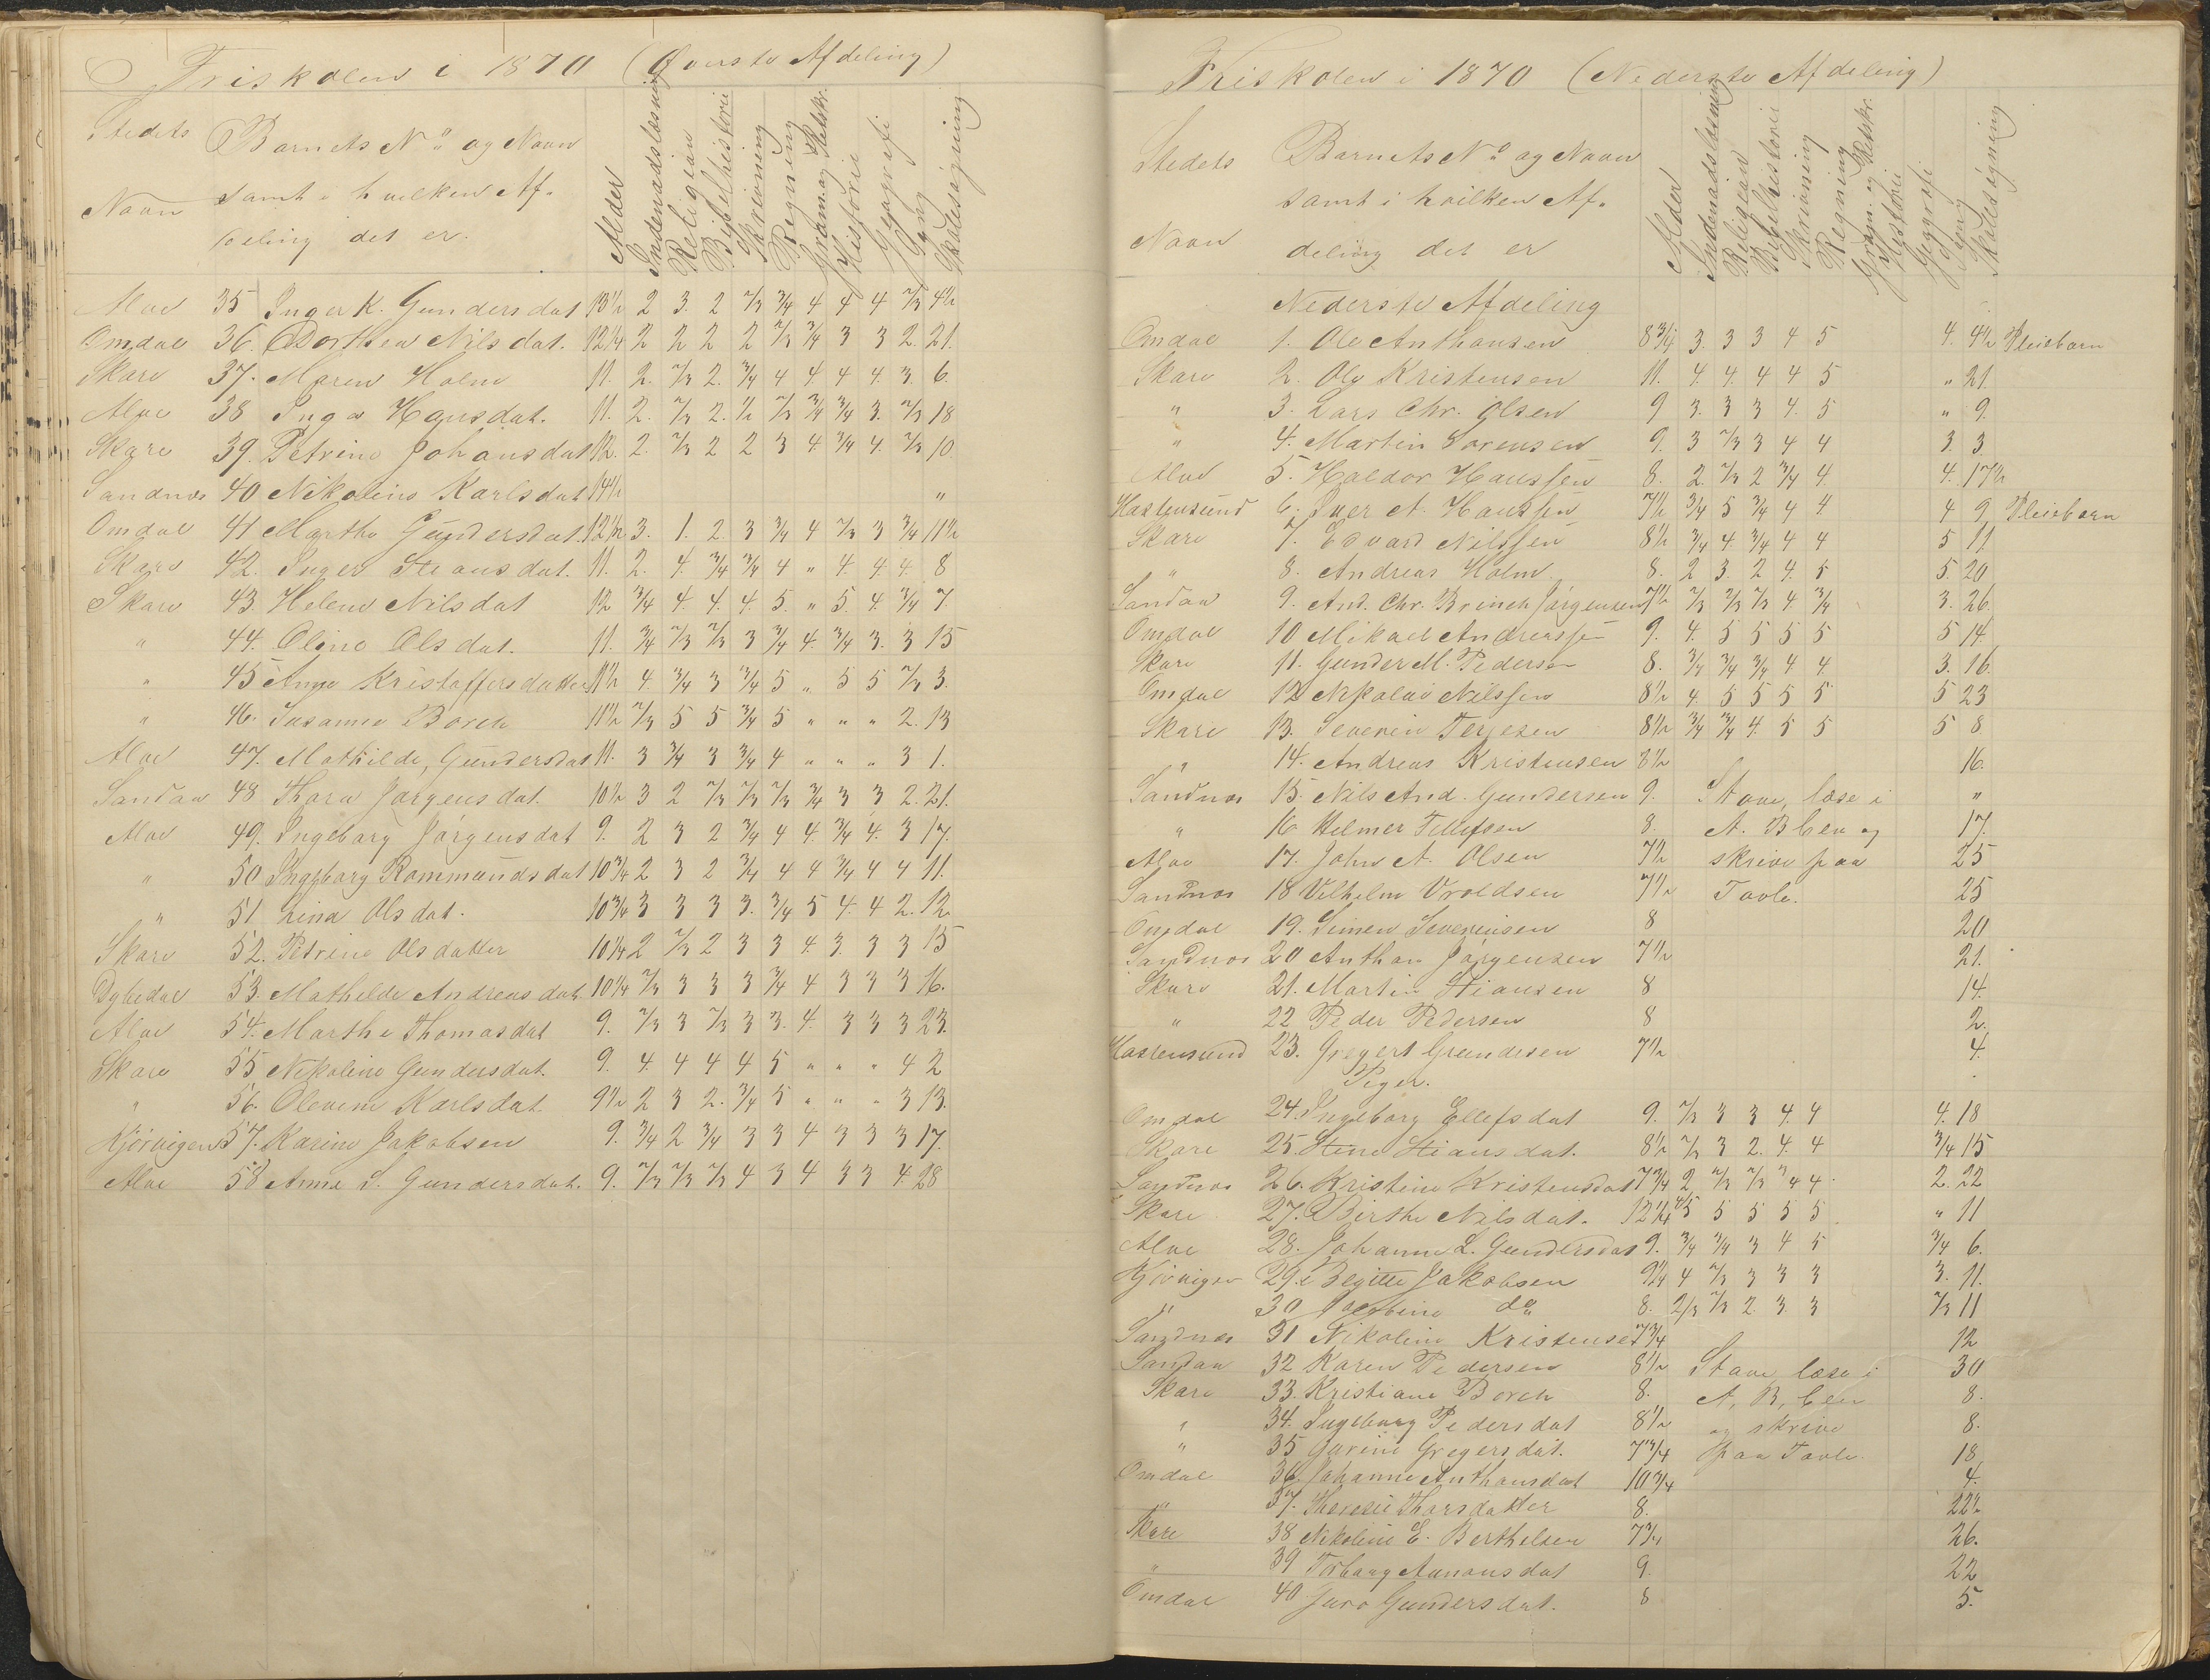 Friskolen i 1870 (Øverste Afdeling)
Stedets Navn
Barnets No og Navn
samt i hvilken Af-
deling det er.
Alder Indenadslæsning Religion Bibelhistorie Skrivning Regning Gram. og Retskr. Historie Geografi Sang Skolesøgning
Alve 35 Inger K. Gundersdat 13½ 2 3. 2 2/3 3/4 4 4 4 2/3 4½
Omdal 36. Dorthea Nilsdat. 12¼ 2 2 2 2 2/3 3/4 3 3 2. 21.
Skare 37. Maren Holm 11. 2. 2/3 2. 3/4 4 4 4 4. 3. 6.
Alve 38 Inga Hansdat. 11. 2. 2/3 2. ½ 2/3 3/4 3/4 3. 2/3 18
Skare 39. Petrine Johansdat 12. 2. 2/3 2 2 3 4. 3/4 4. 2/3 10.
Sandnes 40 Nikoline Karlsdat 14½ "
Omdal 41 Marthe Gundersdat. 12½ 3. 1. 2. 3 3/4 4 2/3 3 3/4 11½
Skare 42. Inger Stiansdat. 11. 2. 4. 3/4 3/4 4 " 4. 4. 4. 8
Skare 43. Helene Nilsdat 12 3/4 4. 4. 4. 5. " 5. 4. 3/4 7.
" 44. Oline Olsdat. 11. 3/4 2/3 2/3 3 3/4 4. 3/4 3. 3 15
" 45 Anne Kristoffersdatter 11½ 4. 3/4 3 3/4 5 " 5 5 2/3 3.
" 46. Susanne Borch 11½ 2/3 5 5 3/4 5 " " " 2. 13
Alve 47. Mathilde, Gundersdat 11. 3 3/4 3 3/4 4 " " " 3 1.
Sandaa 48 Thora Jørgensdat. 10½ 3 2 2/3 2/3 2/3 3/4 3 3 2. 21.
Alve 49. Ingeborg Jørgensdat 9. 2 3 2 3/4 4 4. 3/4 4. 3 17.
" 50 Ingeborg Rommundsdat 10¾ 2 3 2 3/4 4 4 3/4 4 4 11.
" 51. Lina Olsdat. 10¾ 3 3 3 3. 3/4 5 4. 4 2. 12.
Skare 52. Petrine Olsdatter 10¼ 2 2/3 2 3 3 4. 3. 3 3 15
Dybedal 53. Mathilde Andreasdat. 10¼ 2/3 3 3 3 3/4 4 3 3 3 16.
Alve 54. Marthe Thomasdat 9. 2/3 3 2/3 3 3. 4. 3 3 3 23.
Skare 55 Nikoline Gundersdat. 9. 4. 4 4 4 5 " " " 4 2
" 56. Olevine Karlsdat. 9½ 2 3 2. 3/4 5 " " " 3 13.
Kjørvigen 57. Karine Jakobsen 9. 3/4 2 3/4 3 3 4 3 3 3 17.
Alve 58 Anne S. Gundersdat. 9. 2/3 2/3 2/3 4 3 4 3 3 4. 28
Friskolen i 1870 (Nederste Afdeling)
Stedets Navn
Barnets No og Navn
samt i hvilken Af-
deling det er
Alder Indenadslæsning Religion Bibelhistorie Skrivning Regning Gram. og Retskr. Historie Gegrafi Sang Skolesøgning
Nederste Afdeling
Omdal 1. Ole Anthonsen 8¾ 3. 3 3 4 5 4. 4½ Pleiebarn
Skare 2. Ole Kristensen 11. 4. 4. 4 4 5 " 21.
" 3. Lars Chr. Olsen 9 3. 3 3 4. 5 " 9.
" 4. Martin Sørensen 9. 3 2/3 3 4 4 3. 3.
Alve 5. Haldor Hanssen 8. 2. 2/3 2 3/4 4. 4. 17½
Hastensund 6. Iver A. Hanssen 7½ 3/4 5 3/4 4 4 4 9 Pleiebarn
Skare 7. Edvard Nilssen 8½ 3/4 4. 3/4 4 4 5 11
" 8. Andreas Holm. 8. 2 3. 2 4. 5 5. 20
Sandaa 9. And. Chr. Brinch Jørgensen 7½ 2/3 2/3 2/3 4. 3/4 3. 26.
Omdal 10 Mikael Andreassen 9. 4. 5 5 5 5 5 14.
Skare 11. Gunder M. Pedersen 8. 3/4 3/4 3/4 4 4. 3. 16.
Omdal 12 Nikolai Nilssen 8½ 4. 5 5 5 5 5 23
Skare 13. Severin Terjesen 8½ 3/4 3/4 4. 5 5 5 8.
" 14. Andreas Kristensen 8½ 16.
Sandnes 15. Nils And. Gundersen 9. Stave, læse i "
" 16 Helmer Tellefsen 8. A. B Cen og 17.
Alve 17. John A. Olsen 7½ skrive paa 25
Sandnes 18 Vilhelm Vroldsen 7½ Tavle. 25
Omdal 19. Simen Severinsen 8 20
Sandnes 20 Anthon Jørgensen 7½ 21.
Skare 21. Martin Stiansen 8 14.
" 22 Peder Pedersen 8 2.
Hastensund 23. Gregert Gundersen 7½ 4.
Piger.
Omdal 24. Ingeborg Ellefsdat 9. 2/3 3 3 4. 4 4. 18
Skare 25. Stine Stiansdat. 8½ 2/3 3 2. 4. 4 3/4 15
Sandnes 26. Kristine Kristensdat 7¾ 2 2/3 2/3 3/4 4. 2. 22
Skare 27. Birthe Nilsdat. 12¼ 4/5 5 5 5 5 " 11
Alve 28. Johanne L. Gundersdat 9. 3/4 3/4 3 4 5 3/4 6.
Kjørvigen 29. Begitte Jakobsen 9¼ 4 2/3 3 3 3 3. 11.
" 30 Jacobine do 8. 2/3 2/3 2. 3. 3 2/3 11
Sandnes 31 Nikoline Kristensen 7¾ 12
Sandaa 32 Karen Pedersen 8½ Stave, læse i 30
Skare 33. Kristiane Borch 8. A, B, Cen 8.
" 34. Ingeborg Pedersdat 8½ og skrive 8.
" 35 Gurine Gregersdat. 7¾ paa Tavle. 18.
Omdal 36. Johanne Anthonsdat 10¾ 4.
" 37. Theresie Thorsdatter 8. 22½
Skare 38 Nikoline E. Berthelsen 7¾ 26.
" 39 Torborg Aanonsdat 9. 22
Omdal 40 Juro Gundersdat. 8 5.